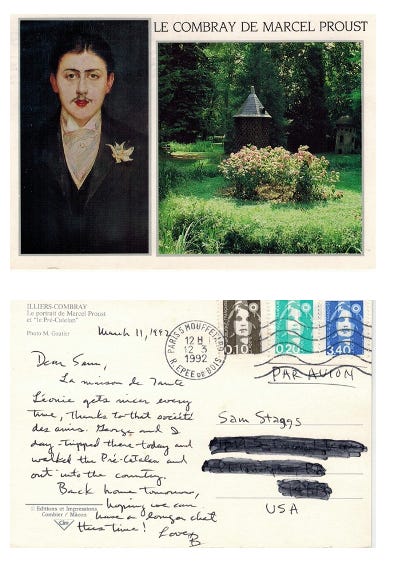 LE COMBRAY DE MARCEL PROUST
ILLIERS-COMBRAY
Le portrait de Marcel Proust
et "le Pré-Catelan"
Photo M. Goutier
March 11, 1992
Dear Sam,
La maison de Tante
Léonie gets nicer every
time, thanks to that société
des amis. George and I
day-tripped there today and
walked the Pré-Catelan and
out into the country.
Back home tomorrow,
hoping we can
have a longer chat
this time!
Love,
B.
© Editions et Impressions
Combier / Mâcon
Cim
PARIS 5 MOUFFETARD
12 H
12 3
1992
R. EPEE de BOIS
0,10
0,20
3,40
PAR AVION
Sam Staggs
USA